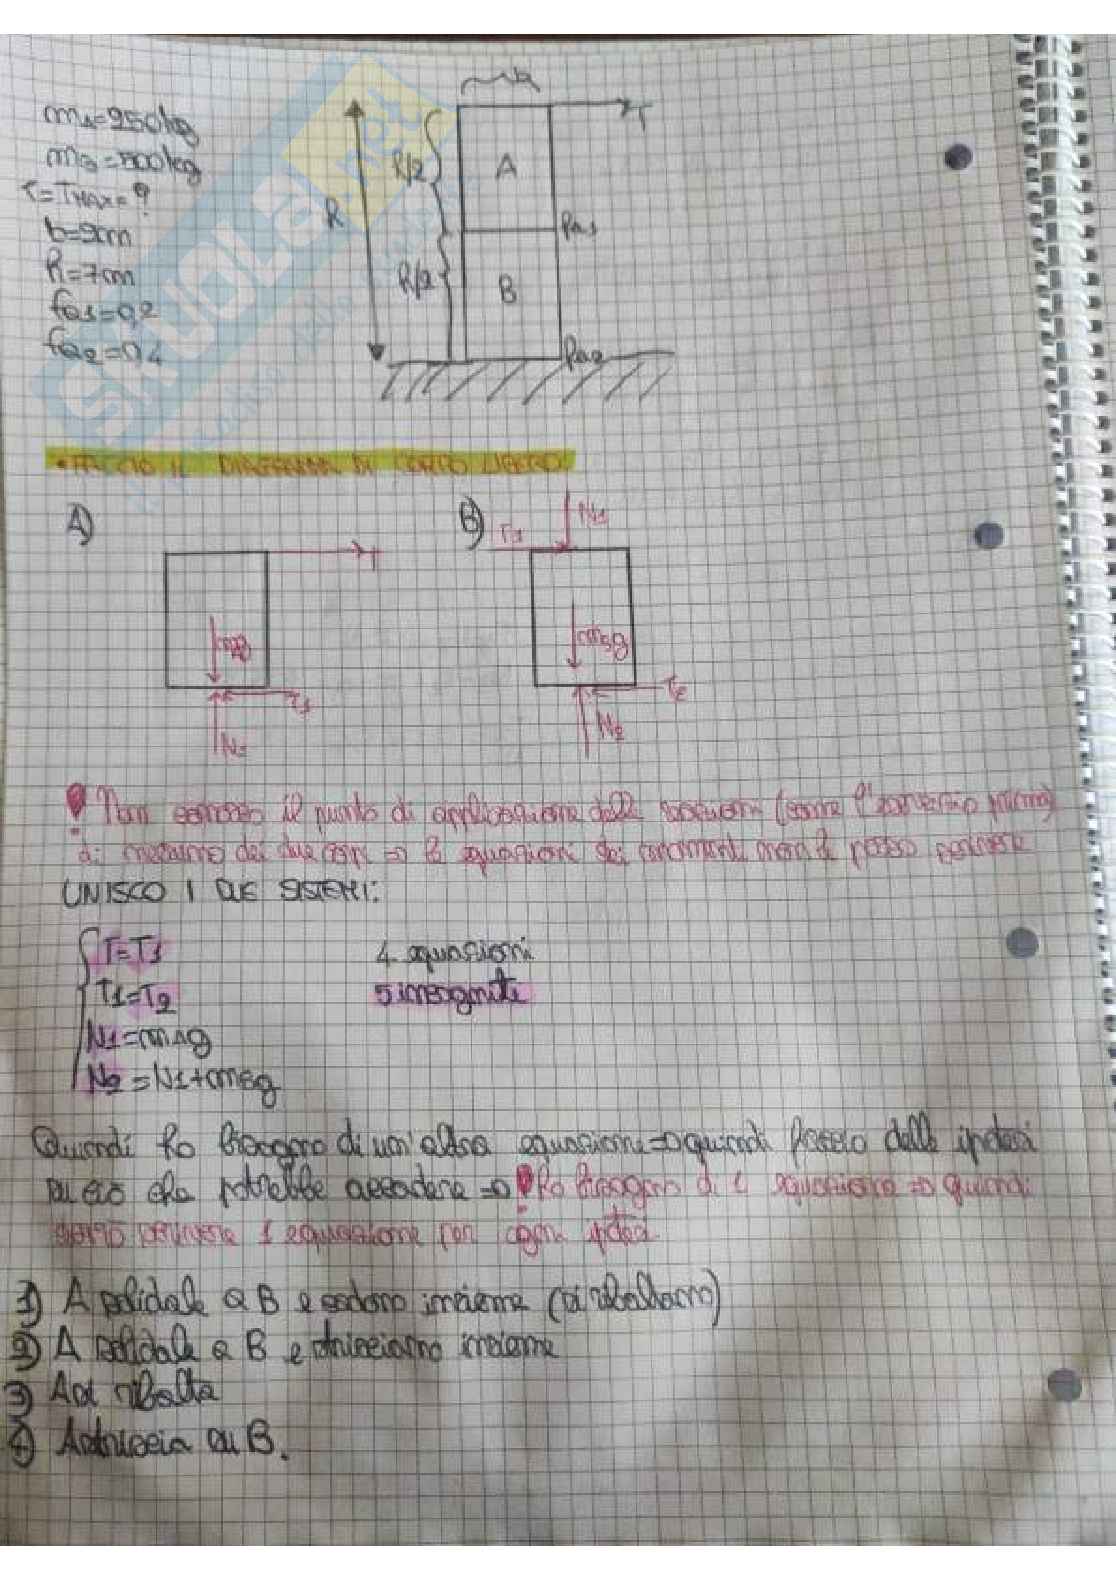 b
T
mA=250kg
R/2
A
T=TMAX=?
R
fa1
b=2m
h=7cm
R/2
B
fa1=0,2
fa2=0,4
fa2
•FACCIO IL DIAGRAMMA DI CORPO LIBERO:
A)
B)
N1
T1
T
mAg
mBg
T1
T2
N1
N2
Non conosco il punto di applicazione delle reazioni (come l'esercizio prima)
di nessuno dei due corpi => le equazioni dei momenti non le posso scrivere
UNISCO I DUE SISTEMI:
T=T1
4 equazioni
T1=T2
5 incognite
N1=mAg
N2=N1+mBg
Quindi ho bisogno di un'altra equazione => quindi faccio delle ipotesi
su ciò che potrebbe accadere => ho bisogno di 1 equazione => quindi
scrivere 1 equazione per ogni ipotesi
1) A solidale a B e cadono insieme (si ribaltano)
2) A solidale a B e strisciano insieme
3) A si ribalta
4) A striscia su B.